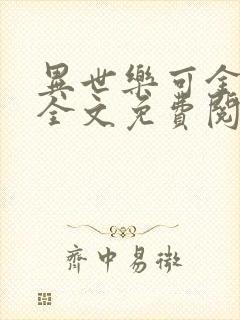 異世樂可全
全文免費閱
齊中易微